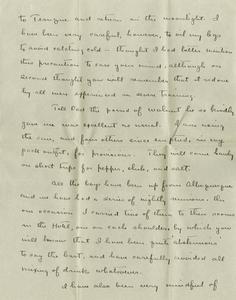 to Tesuque and return in the moonlight. I
have been very careful, however, to oil my legs
to avoid catching cold - thought I had better mention
this precaution to ease your mind, although on
second thought you will remember that it is done
by all men experienced in severe training.
Tell Dad the parcel of Walnut he so kindly
gave me was excellent as usual. I am using
the can, and four others since emptied, in my
pack outfit, for provisions. They will come handy
on short trips for pepper, chili, and salt.
All the boys have been up from Albuquerque
and we have had a series of nightly reunions. On
one occasion I carried two of them to their rooms
in the Hotel, one on each shoulder, by which you
will know that I have been quite abstemious
to say the least, and have carefully avoided all
mixing of drinks whatsoever.
I have also been very mindful of